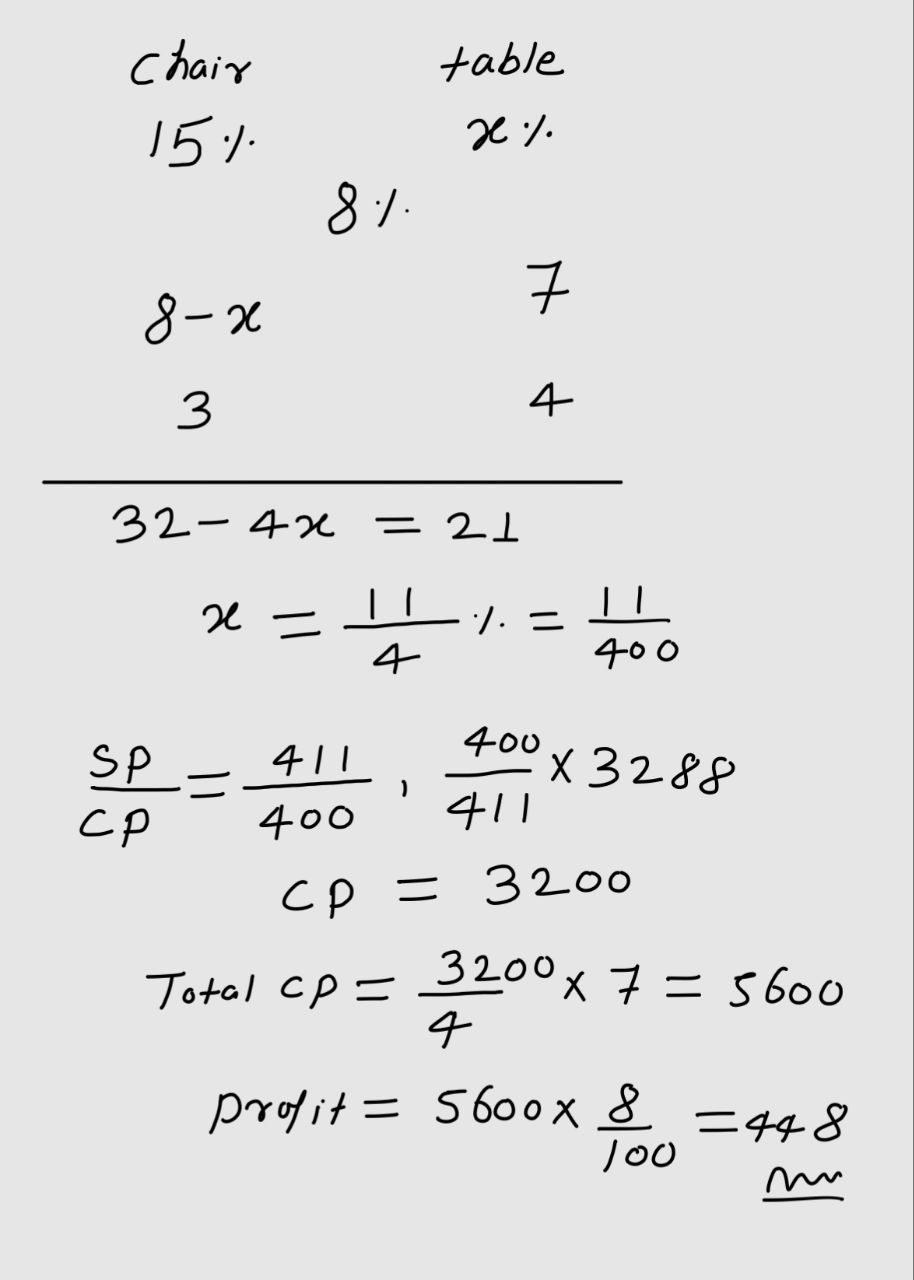 Chair table
15% x%
8%
7
8-x
3 4
32-4x = 21
x = 11/4 % = 11/400
SP/CP = 411/400 , 400/411 x 3288
CP = 3200
Total CP = 3200/4 x 7 = 5600
profit = 5600 x 8/100 = 448